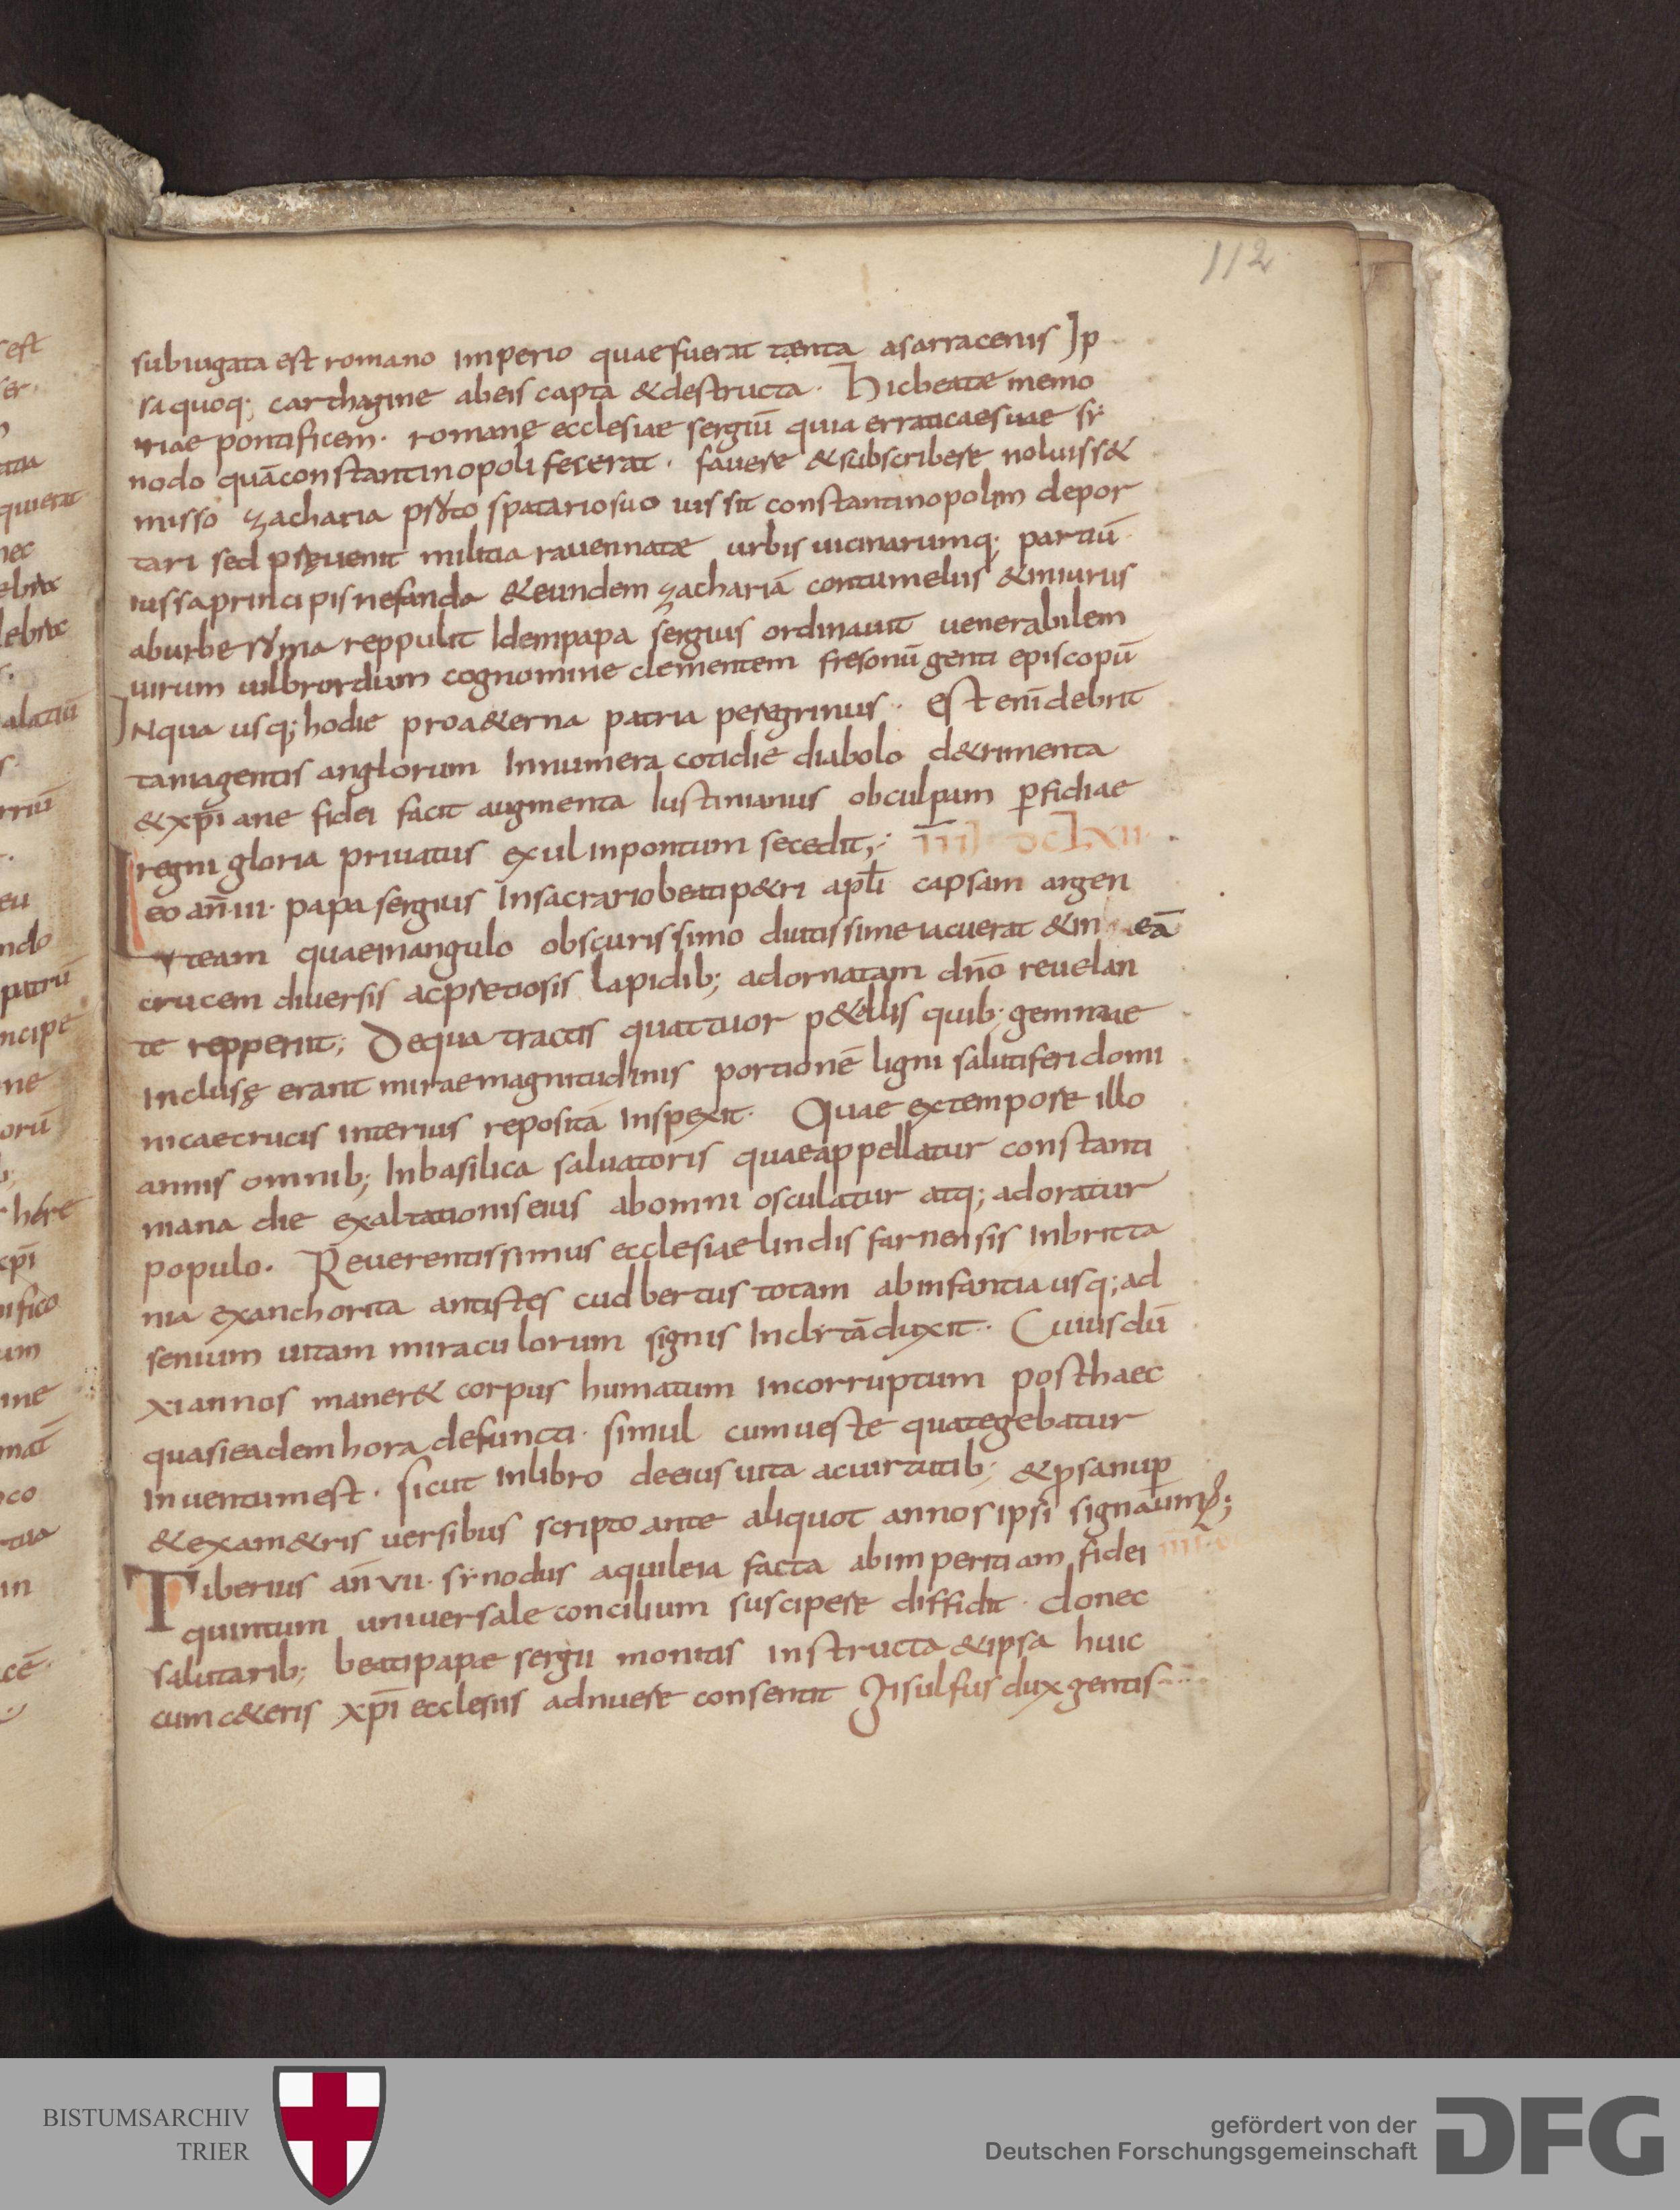 112
subiugata est romano imperio quae fuerat tenta a sarracenis Ip
sa quoq; carthagine ab eis capta & destructa. Hic beatae memo
riae pontificem. romane ecclesiae sergiū quia erraticae suae sy
nodo quā constantinopoli fecerat. favere & subscribere noluiss&
misso zacharia psꝩto spatario suo iussit constantinopolim depor
tari sed pręuenit militia rauennatæ urbis uicinarumq; partiū
iussa principis nefanda & eundem zachariā contumeliis & iniuriis
ab urbe roma reppulit Idem papa sergius ordinauit uenerabilem
uirum uilbrordum cognomine clementem fresonū genti episcopū
In qua usq; hodie pro a&erna patria peregrinus. est enī de brit
tania gentis anglorum Innumera cotidie diabolo d&rimenta
& xp̄iane fidei facit augmenta Iustinianus ob culpam ꝑfidiae
regni gloria priuatus exul in pontum secedit;
Leo an̄ iii. papa sergius In sacrario beati p&ri apl̄i capsam argen
team quae in angulo obscurissimo diutissime iacuerat & in eā
crucem diuersis ac pretiosis lapidib; adornatam dn̄o reuelan
te repperiit; De qua tractis quattuor p&ellis quib. gemmae
inclusę erant mirae magnitudinis portionē ligni salutiferi domi
nicae crucis interius repositā Inspexit. Quae ex tempore illo
annis omnib; In basilica saluatoris quae appellatur constanti
niana die exaltationis eius ab omni osculatur atq; adoratur
populo. Reuerentissimus ecclesiae lindisfarnensis in britta
nia ex anchorita antistes cudbertus totam ab infantia usq; ad
senium uitam miraculorum signis Inclitā duxit. Cuius dū
xi annos maner& corpus humatum incorruptum post haec
quasi eadem hora defuncti. simul cum ueste qua tegebatur
inuentum est. sicut in libro de eius uita ac uirtutib; & p̄sa nup̄
& exam&ris uersibus scripto ante aliquot annos ipsi signauim;
Tiberius an̄ vii. synodus aquileia facta ab imperitiam fidei
quintum uniuersale concilium suscipere diffidit. donec
salutarib; beati papæ sergii monitis instructa & ipsa huic
cum c&eris xp̄i ecclesiis adnuere consentit Gisulfus dux gentis
BISTUMSARCHIV
TRIER
gefördert von der
Deutschen Forschungsgemeinschaft
DFG